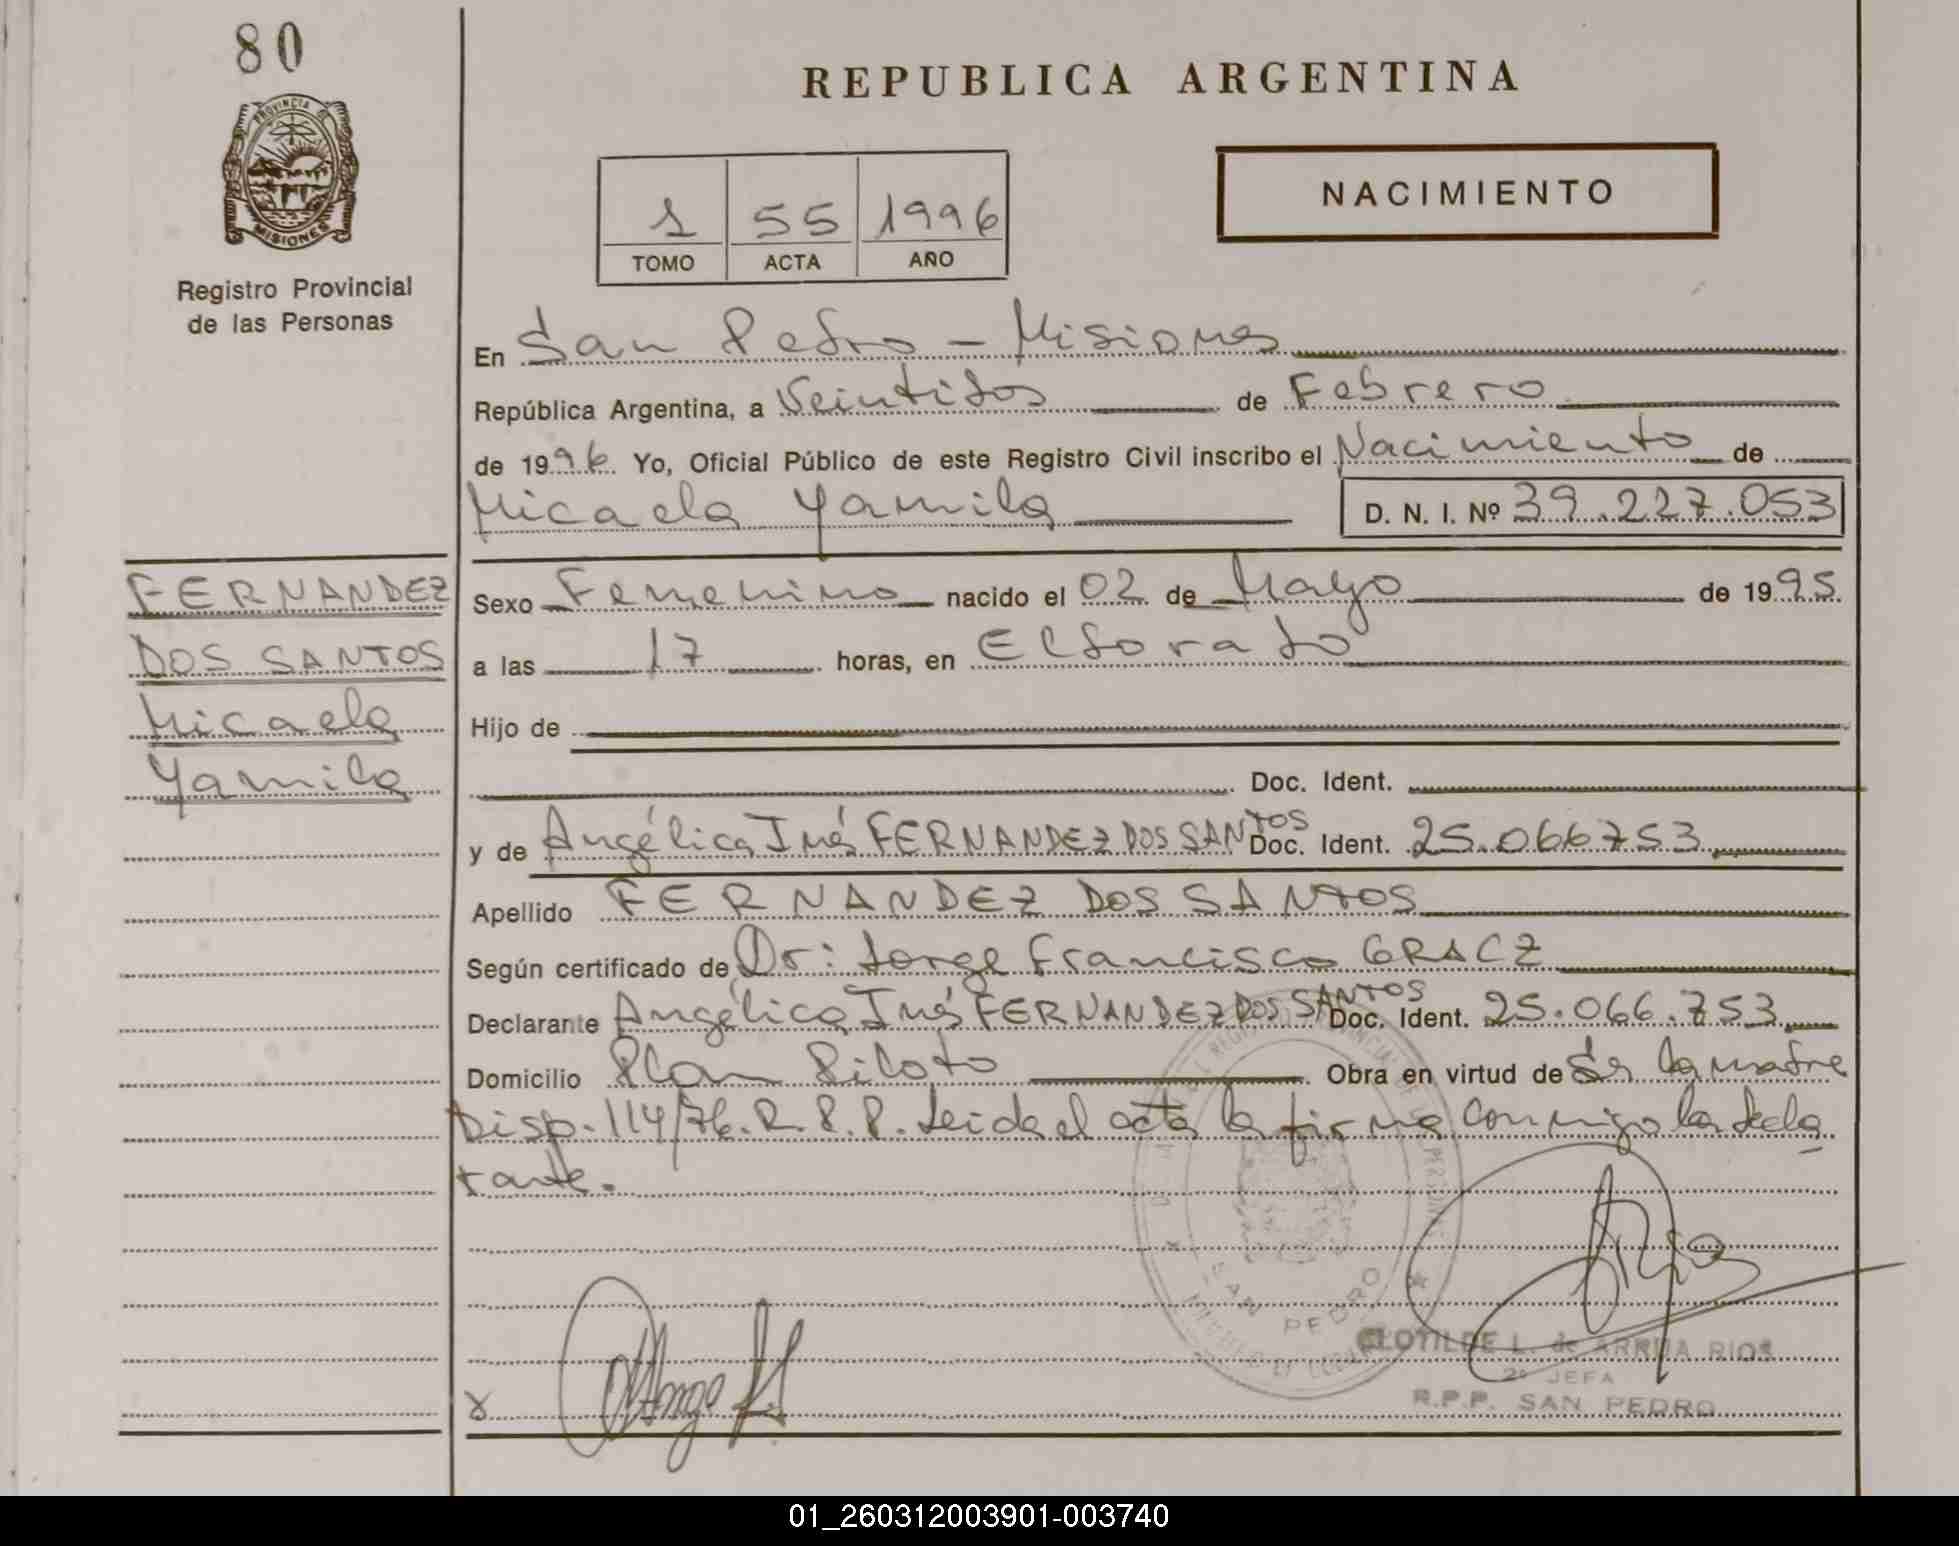 80
REPUBLICA ARGENTINA
PROVINCIA DE
MISIONES
Registro Provincial
de las Personas
1 55 1996
TOMO ACTA AÑO
NACIMIENTO
En San Pedro - Misiones
República Argentina, a Veintidos de Febrero
de 1996. Yo, Oficial Público de este Registro Civil inscribo el Nacimiento de
Micaela Yamila D. N. I. Nº 39.227.053
FERNANDEZ
DOS SANTOS
Micaela
Yamila
Sexo Femenino nacido el 02 de Mayo de 1995.
a las 17 horas, en Eldorado
Hijo de
Doc. Ident.
y de Angélica Inés FERNANDEZ DOS SANTOS Doc. Ident. 25.066753
Apellido FERNANDEZ DOS SANTOS
Según certificado de Dr: Jorge Francisco GRACZ
Declarante Angélica Inés FERNANDEZ DOS SANTOS Doc. Ident. 25.066.753
Domicilio Plan Piloto Obra en virtud de Ser la madre
Disp. 114/76. R. P. P. Leida el acta la firma conmigo la decla
rante.
SAN PEDRO
CLOTILDE L. de ARRUA RIOS
2º JEFA
R.P.P. SAN PEDRO
01_260312003901-003740